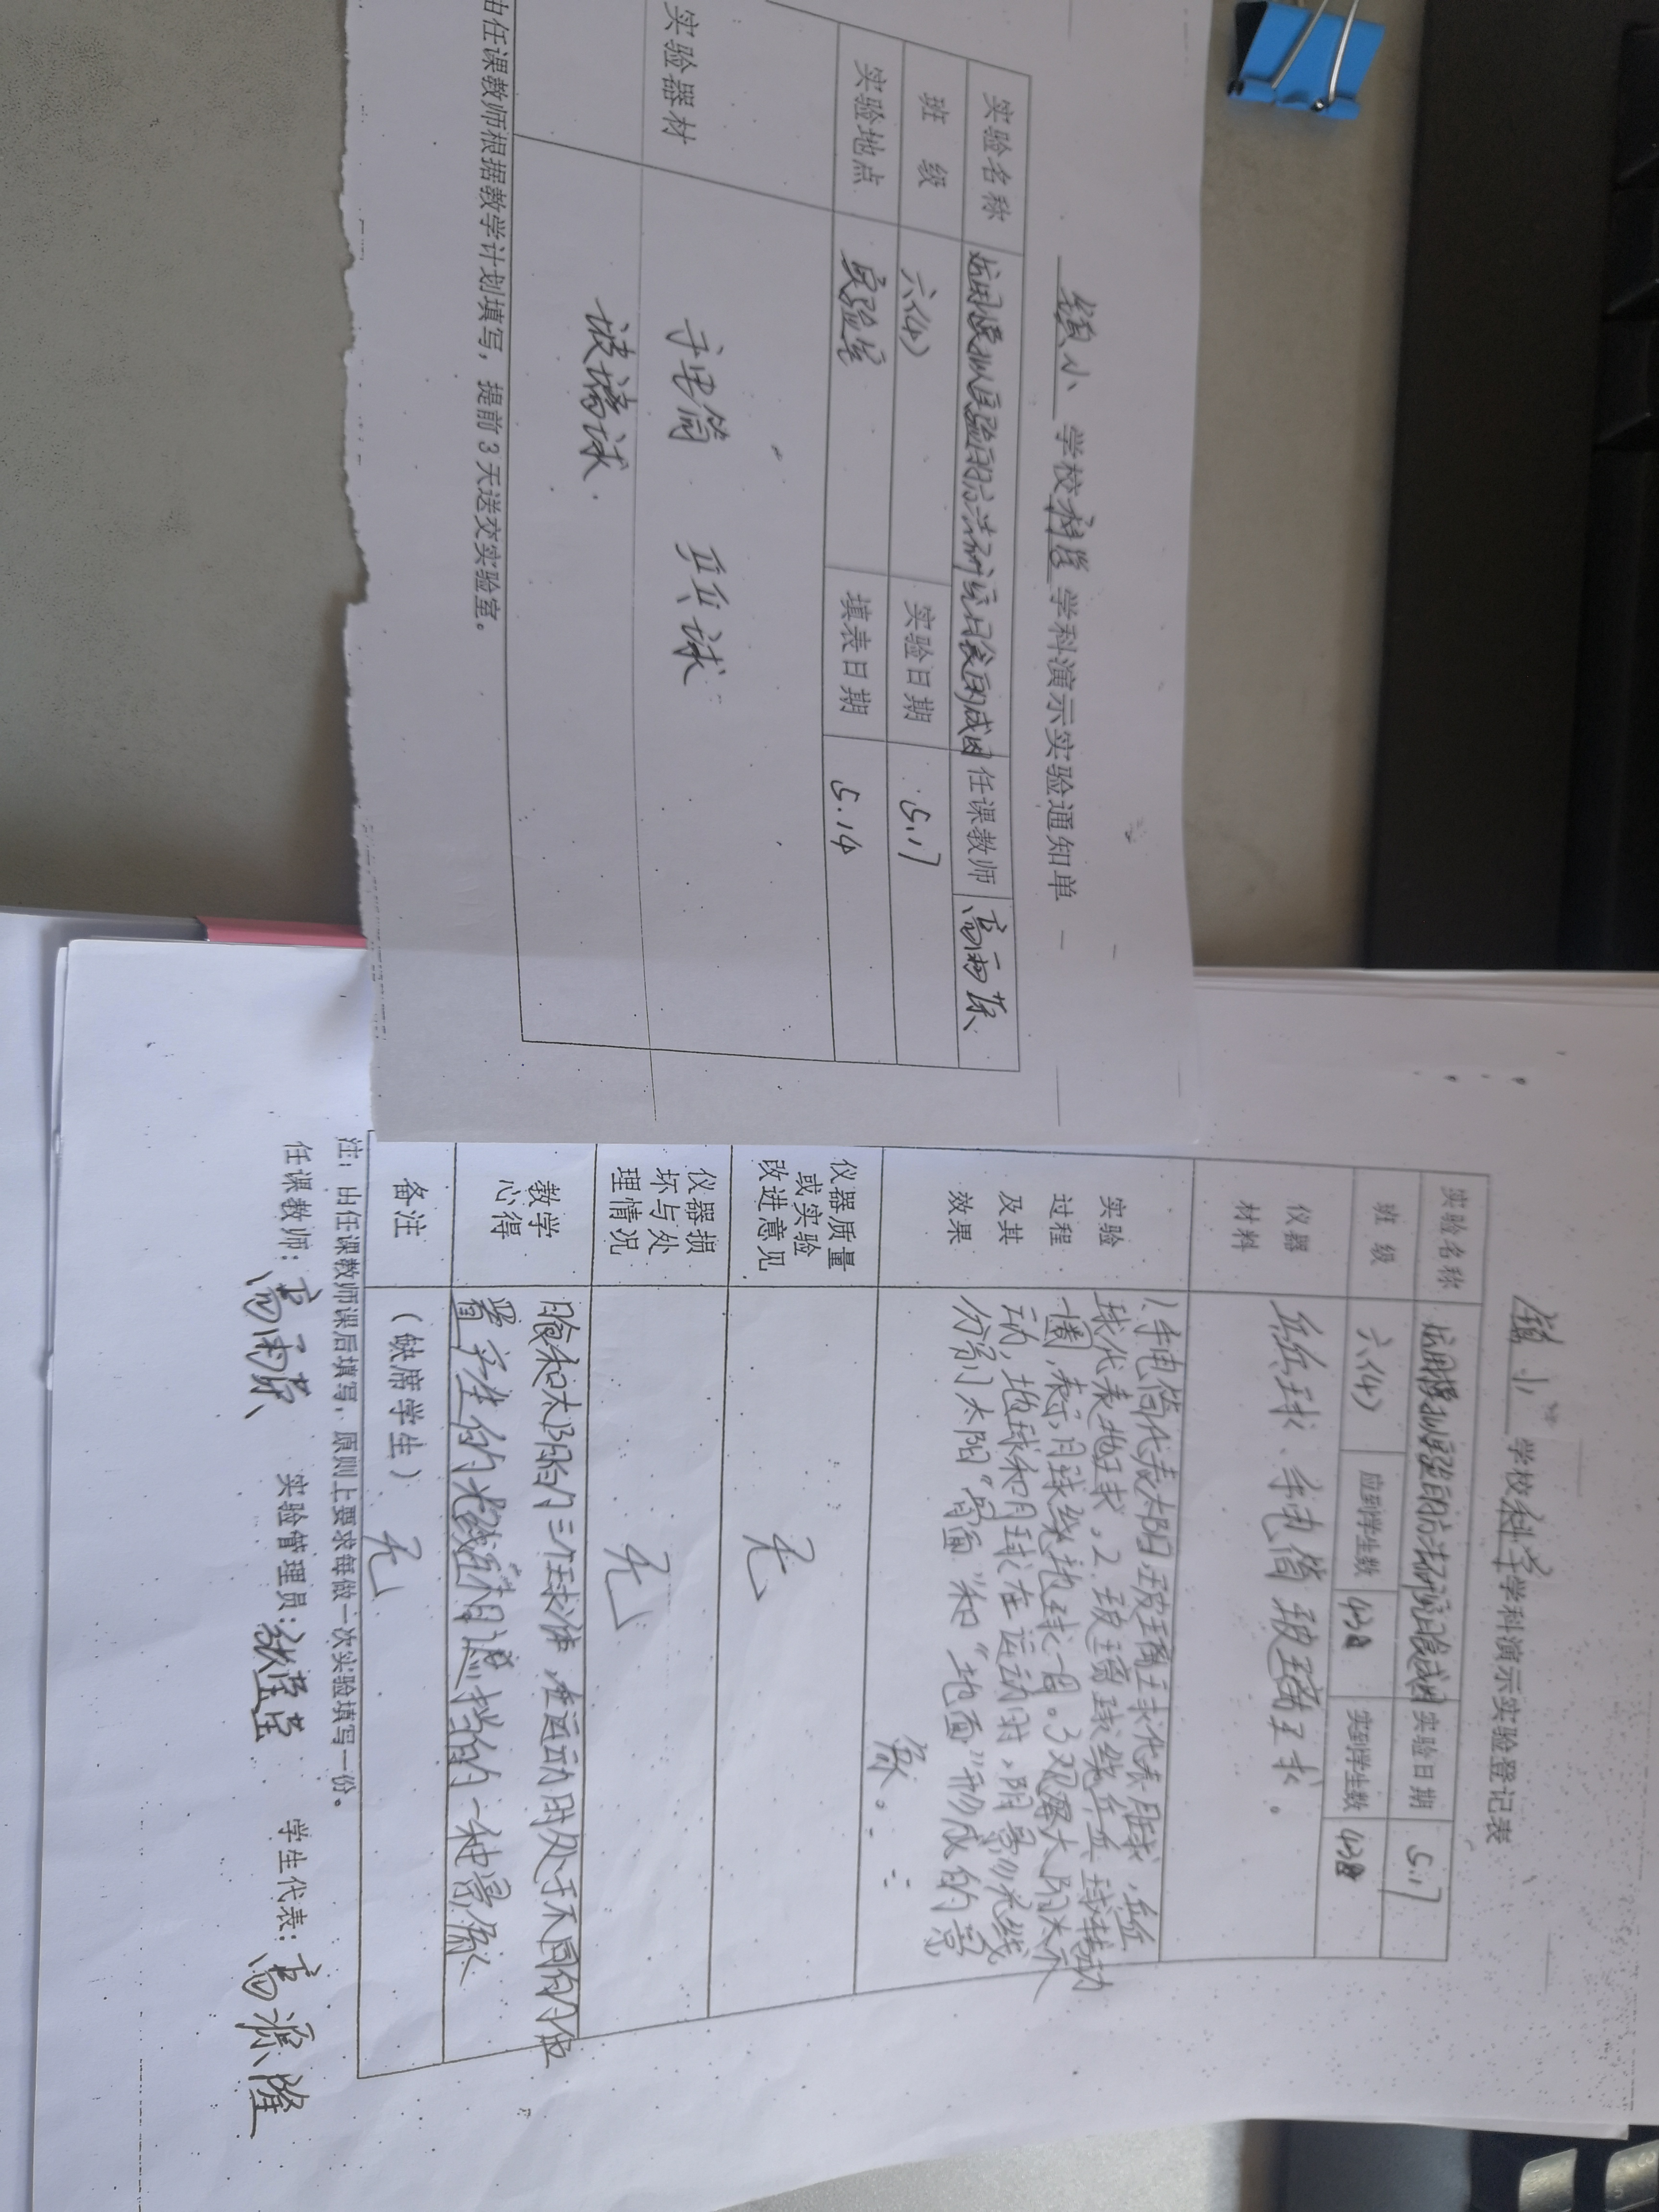 镇小 学校科学学科演示实验通知单
实验名称 运用模拟实验的方法研究日食的成因 任课教师 高雨荣
班 级 六(4) 实验日期 5.17
实验地点 实验室 填表日期 5.14
实验器材 手电筒 乒乓球
玻璃球.
由任课教师根据教学计划填写，提前3天送交实验室。
镇小 学校科学学科演示实验登记表
实验名称 运用模拟实验的方法研究日食成因 实验日期 5.17
班 级 六(4) 应到学生数 实到学生数
仪器
材料
乒乓球、手电筒 玻璃球.
实验
过程
及其
效果
1.手电筒代表太阳 玻璃球代表月球,乒乓
球代表地球,2.玻璃球绕乒乓球转动
一圈,表示月球绕地球一周。3观察太阳大
动,地球和月球在运动时,阴影光线
分别"太阳"背面"和"地面"形成的景
象。
仪器质量
或实验
改进意见
无
仪器损
坏与处
理情况
无
教学
心得
日食和太阳的三个球体,在运动时处于不同的位
置产生的光线相遮挡的一种景象
备注
（缺席学生） 无
注：由任课教师课后填写，原则上要求每做一次实验填写一份。
任课教师：高雨荣 实验管理员： 学生代表：高源隆